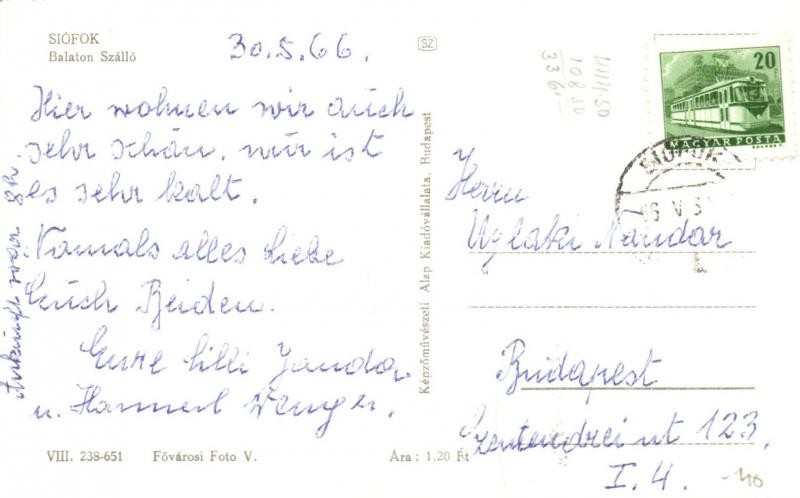 SIÓFOK
Balaton Szálló
30.5.66.
Hier wohnen wir auch
sehr schön, nur ist
es sehr kalt.
Nomals alles Liebe
Euch Beiden.
Eure Lilli Janda
u. Hannerl Wenger.
Ankunft war 8h.
VIII. 238-651 Fővárosi Foto V. Ára: 1,20 Ft
Képzőművészeti Alap Kiadóvállalata, Budapest
SZ
20
MAGYAR POSTA
SIÓFOK
Herrn
Ujlaki Nandor
Budapest
Szentendrei ut 123.
I. 4.